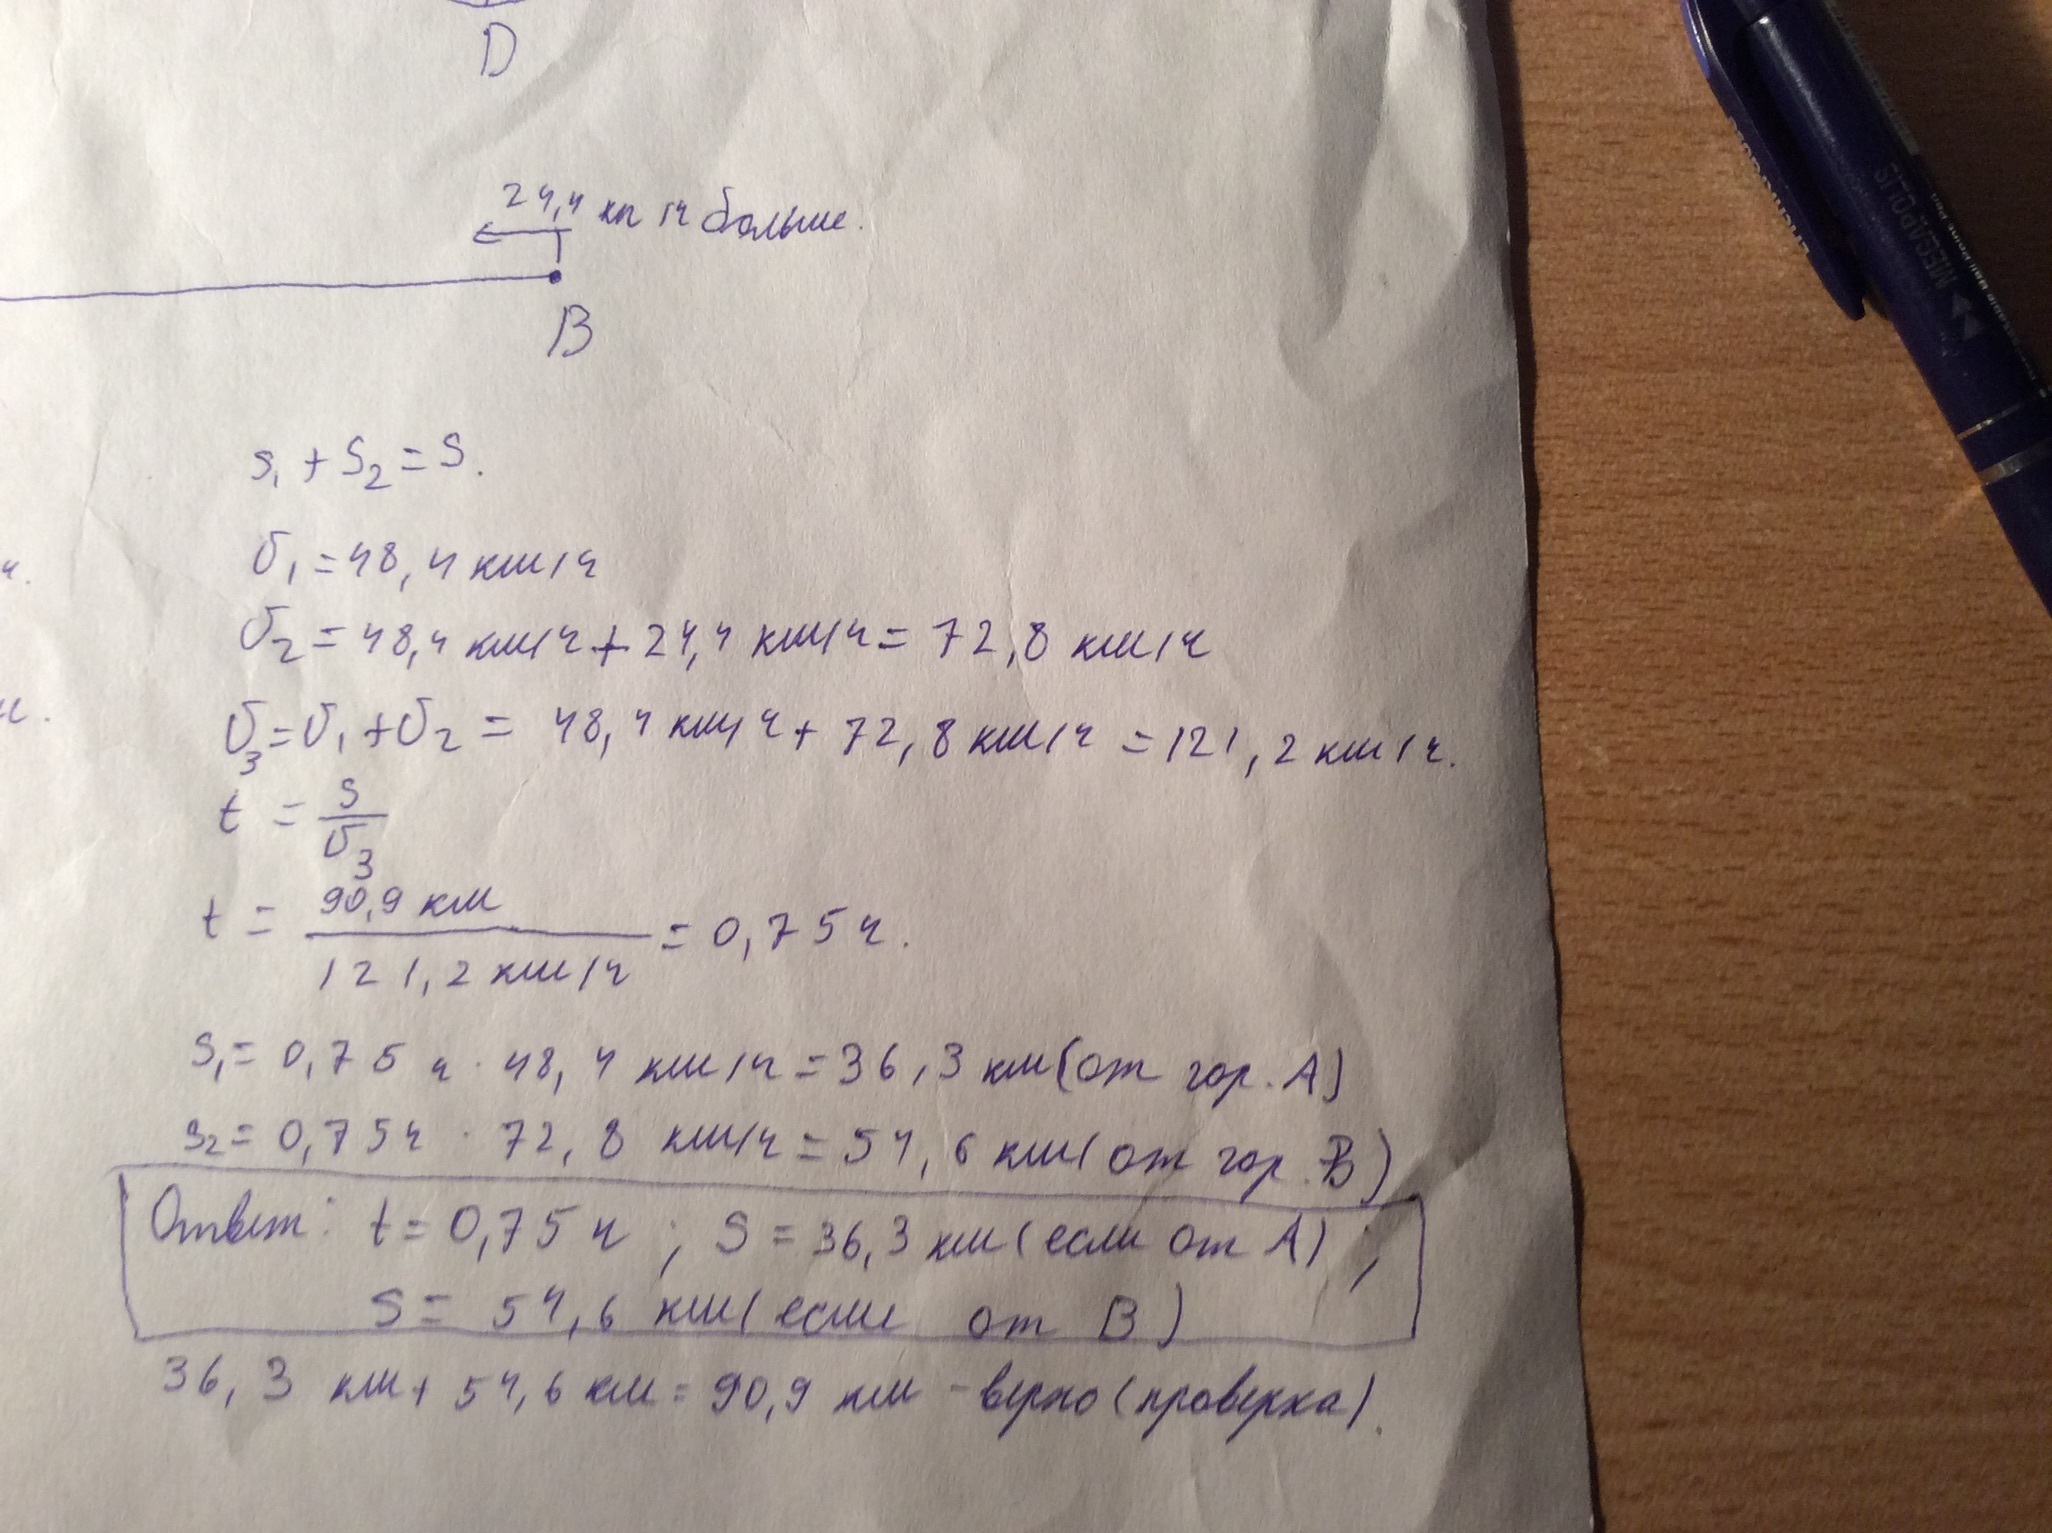 D
24,4 км/ч больше.
B
s₁ + s₂ = s.
ч.
υ₁ = 48,4 км/ч
υ₂ = 48,4 км/ч + 24,4 км/ч = 72,8 км/ч
υ₃ = υ₁ + υ₂ = 48,4 км/ч + 72,8 км/ч = 121,2 км/ч.
t = s/υ₃
t = 90,9 км / 121,2 км/ч = 0,75 ч.
s₁ = 0,75 ч · 48,4 км/ч = 36,3 км (от гор. A)
s₂ = 0,75 ч · 72,8 км/ч = 54,6 км (от гор. B)
Ответ: t = 0,75 ч ; S = 36,3 км (если от A) ;
S = 54,6 км (если от B)
36,3 км + 54,6 км = 90,9 км - верно (проверка).
MEGAPOLIS